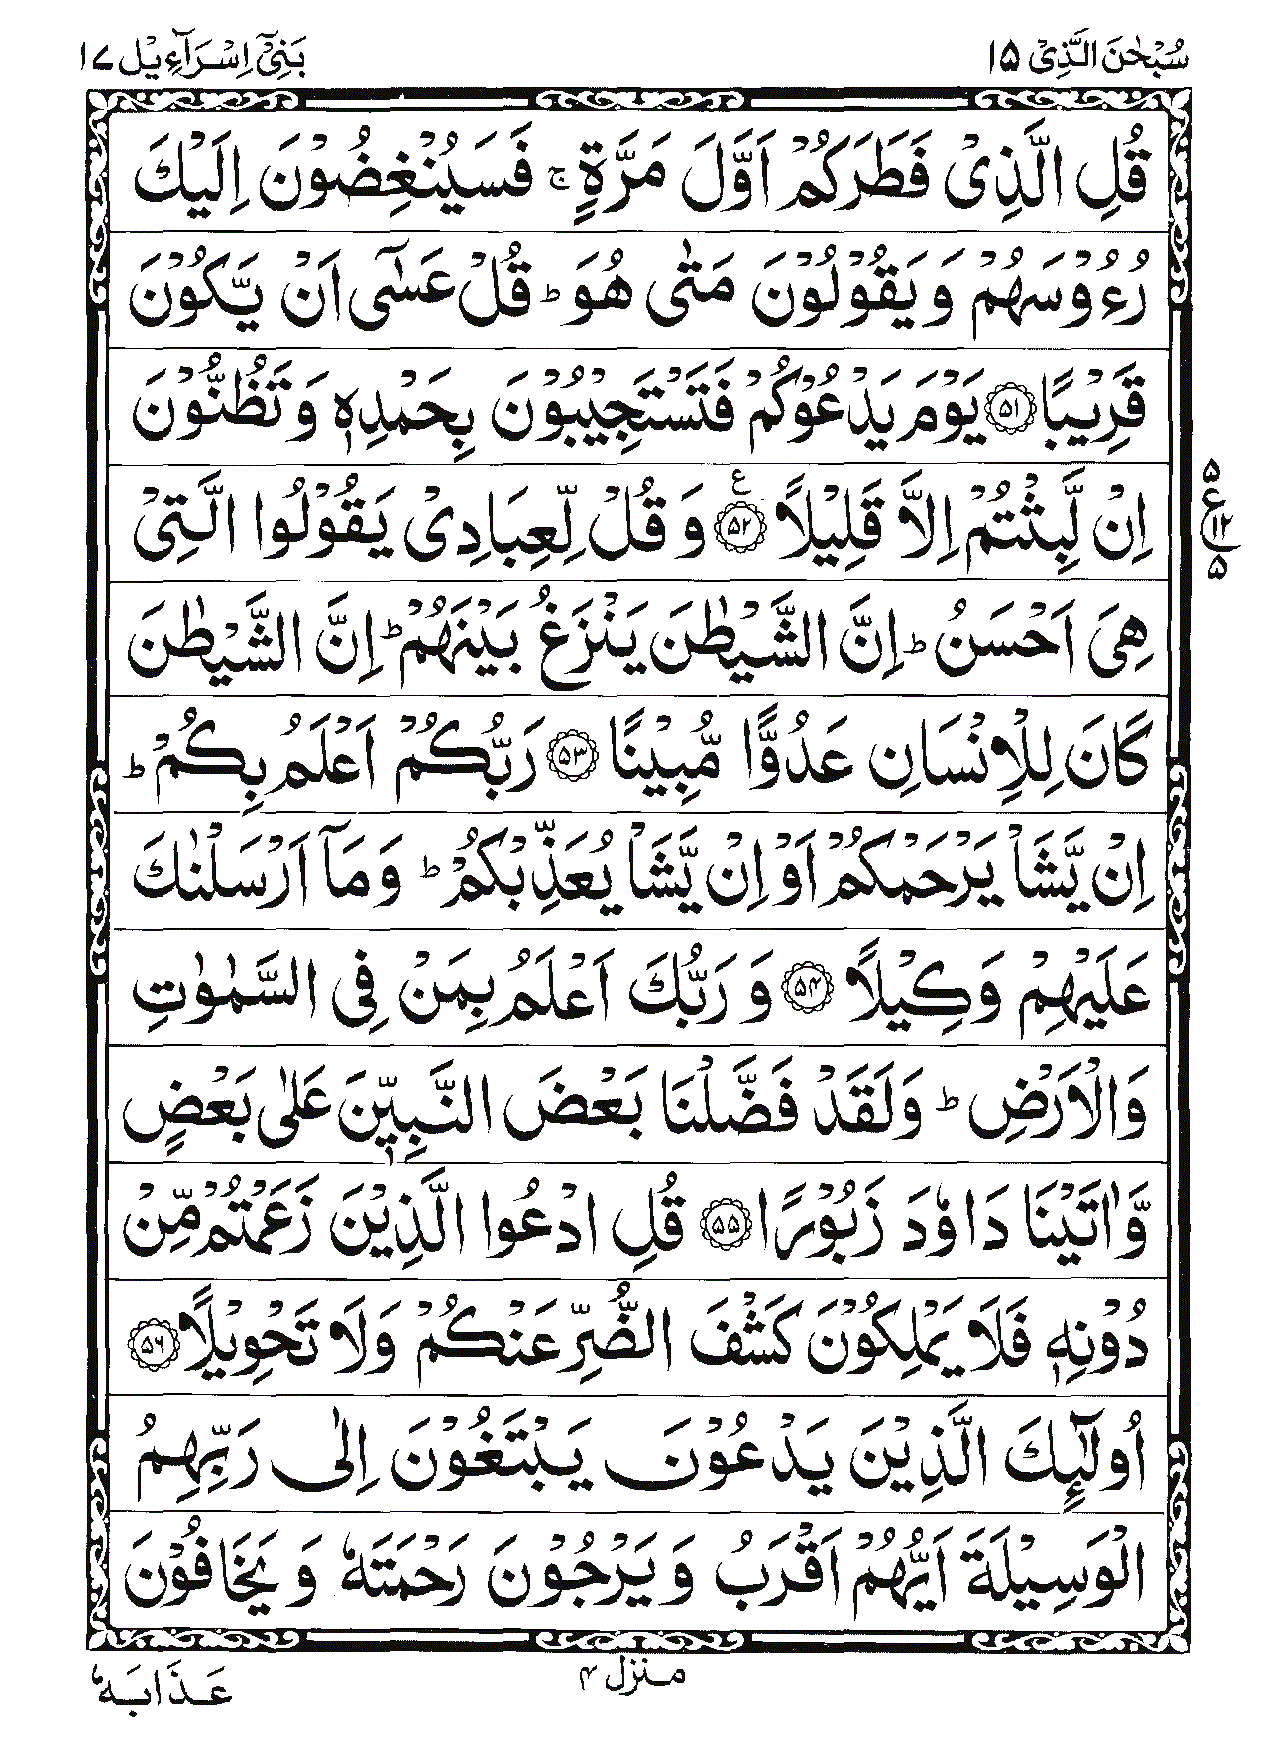 سُبْحٰنَ الَّذِیْ ۱۵
بَنِیْۤ اِسْرَآءِیْل ۱۷
قُلِ الَّذِیْ فَطَرَكُمْ اَوَّلَ مَرَّةٍ ۚ فَسَیُنْغِضُوْنَ اِلَیْكَ
رُءُوْسَهُمْ وَ یَقُوْلُوْنَ مَتٰی هُوَ ؕ قُلْ عَسٰۤی اَنْ یَّكُوْنَ
قَرِیْبًا ﴿۵۱﴾ یَوْمَ یَدْعُوْكُمْ فَتَسْتَجِیْبُوْنَ بِحَمْدِهٖ وَ تَظُنُّوْنَ
اِنْ لَّبِثْتُمْ اِلَّا قَلِیْلًا ﴿۵۲﴾ ع وَ قُلْ لِّعِبَادِیْ یَقُوْلُوا الَّتِیْ
۵ ع ۱۲ ۵
هِیَ اَحْسَنُ ؕ اِنَّ الشَّیْطٰنَ یَنْزَغُ بَیْنَهُمْ ؕ اِنَّ الشَّیْطٰنَ
كَانَ لِلْاِنْسَانِ عَدُوًّا مُّبِیْنًا ﴿۵۳﴾ رَبُّكُمْ اَعْلَمُ بِكُمْ ؕ
اِنْ یَّشَاْ یَرْحَمْكُمْ اَوْ اِنْ یَّشَاْ یُعَذِّبْكُمْ ؕ وَ مَاۤ اَرْسَلْنٰكَ
عَلَیْهِمْ وَكِیْلًا ﴿۵۴﴾ وَ رَبُّكَ اَعْلَمُ بِمَنْ فِی السَّمٰوٰتِ
وَالْاَرْضِ ؕ وَلَقَدْ فَضَّلْنَا بَعْضَ النَّبِیّٖنَ عَلٰی بَعْضٍ
وَّاٰتَیْنَا دَاوٗدَ زَبُوْرًا ﴿۵۵﴾ قُلِ ادْعُوا الَّذِیْنَ زَعَمْتُمْ مِّنْ
دُوْنِهٖ فَلَا یَمْلِكُوْنَ كَشْفَ الضُّرِّ عَنْكُمْ وَلَا تَحْوِیْلًا ﴿۵۶﴾
اُولٰٓئِكَ الَّذِیْنَ یَدْعُوْنَ یَبْتَغُوْنَ اِلٰی رَبِّهِمُ
الْوَسِیْلَةَ اَیُّهُمْ اَقْرَبُ وَ یَرْجُوْنَ رَحْمَتَهٗ وَ یَخَافُوْنَ
منزل ۴
عَذَابَهٗ